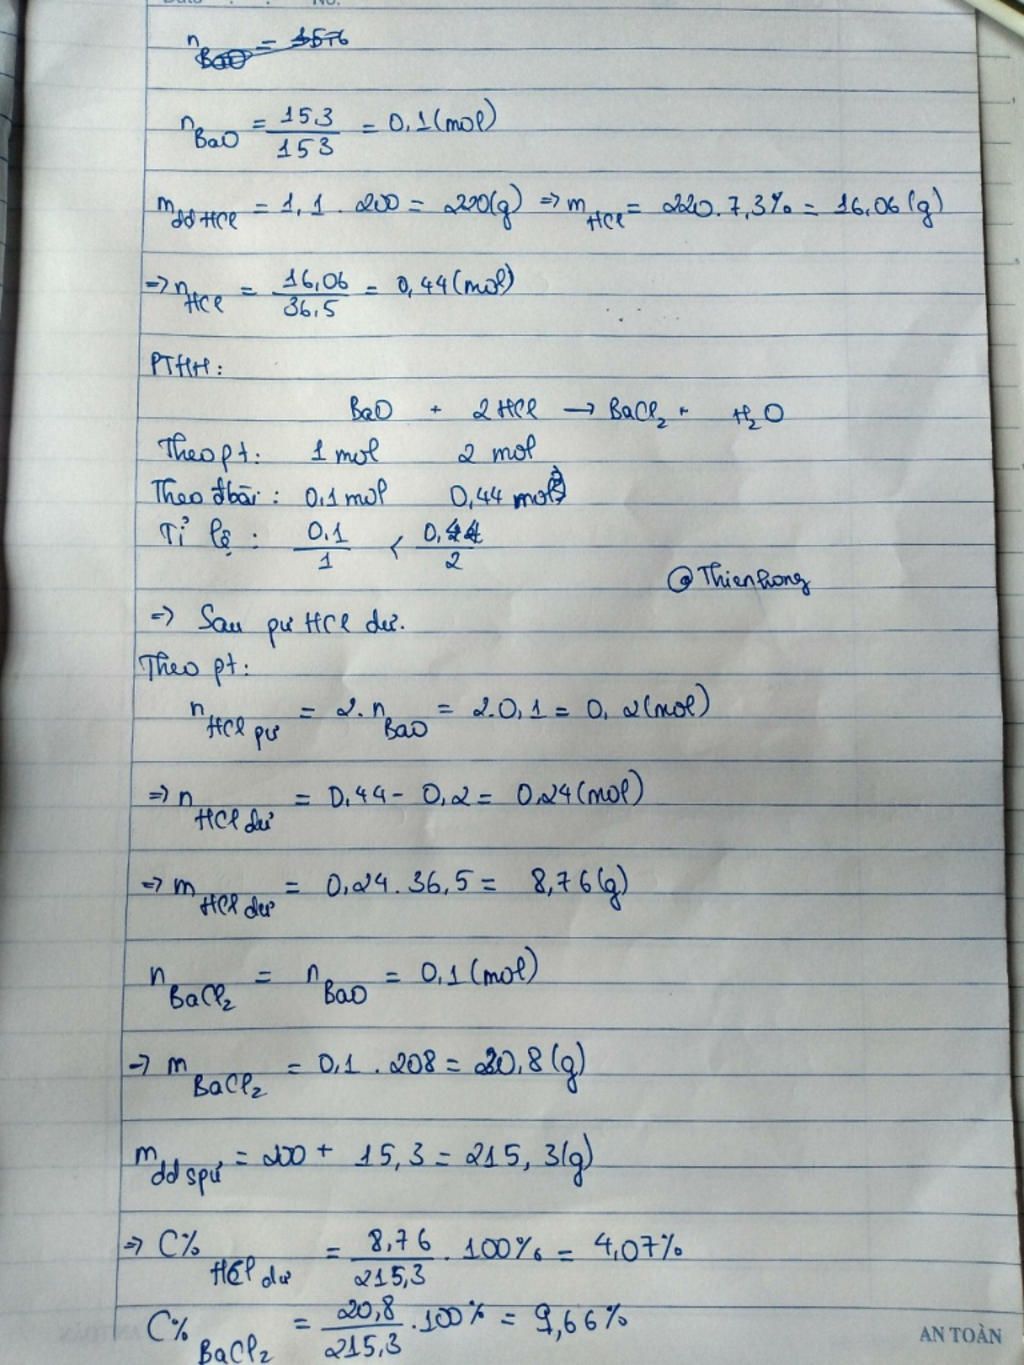 n BaO = 15,6
n BaO = 15,3/153 = 0,1 (mol)
m dd HCl = 1,1 . 200 = 220(g) => m HCl = 220.7,3% = 16,06 (g)
=> n HCl = 16,06/36,5 = 0,44 (mol)
PTHH:
BaO + 2HCl → BaCl₂ + H₂O
Theo pt: 1 mol 2 mol
Theo đbài: 0,1 mol 0,44 mol
Tỉ lệ: 0,1/1 < 0,44/2
@Thienhong
=> Sau pư HCl dư.
Theo pt:
n HCl pư = 2.n BaO = 2.0,1 = 0,2 (mol)
=> n HCl dư = 0,44 - 0,2 = 0,24 (mol)
=> m HCl dư = 0,24.36,5 = 8,76 (g)
n BaCl₂ = n BaO = 0,1 (mol)
→ m BaCl₂ = 0,1 . 208 = 20,8 (g)
m dd spư = 200 + 15,3 = 215,3(g)
=> C% HCl dư = 8,76/215,3 . 100% = 4,07%
C% BaCl₂ = 20,8/215,3 .100% = 9,66%
AN TOÀN